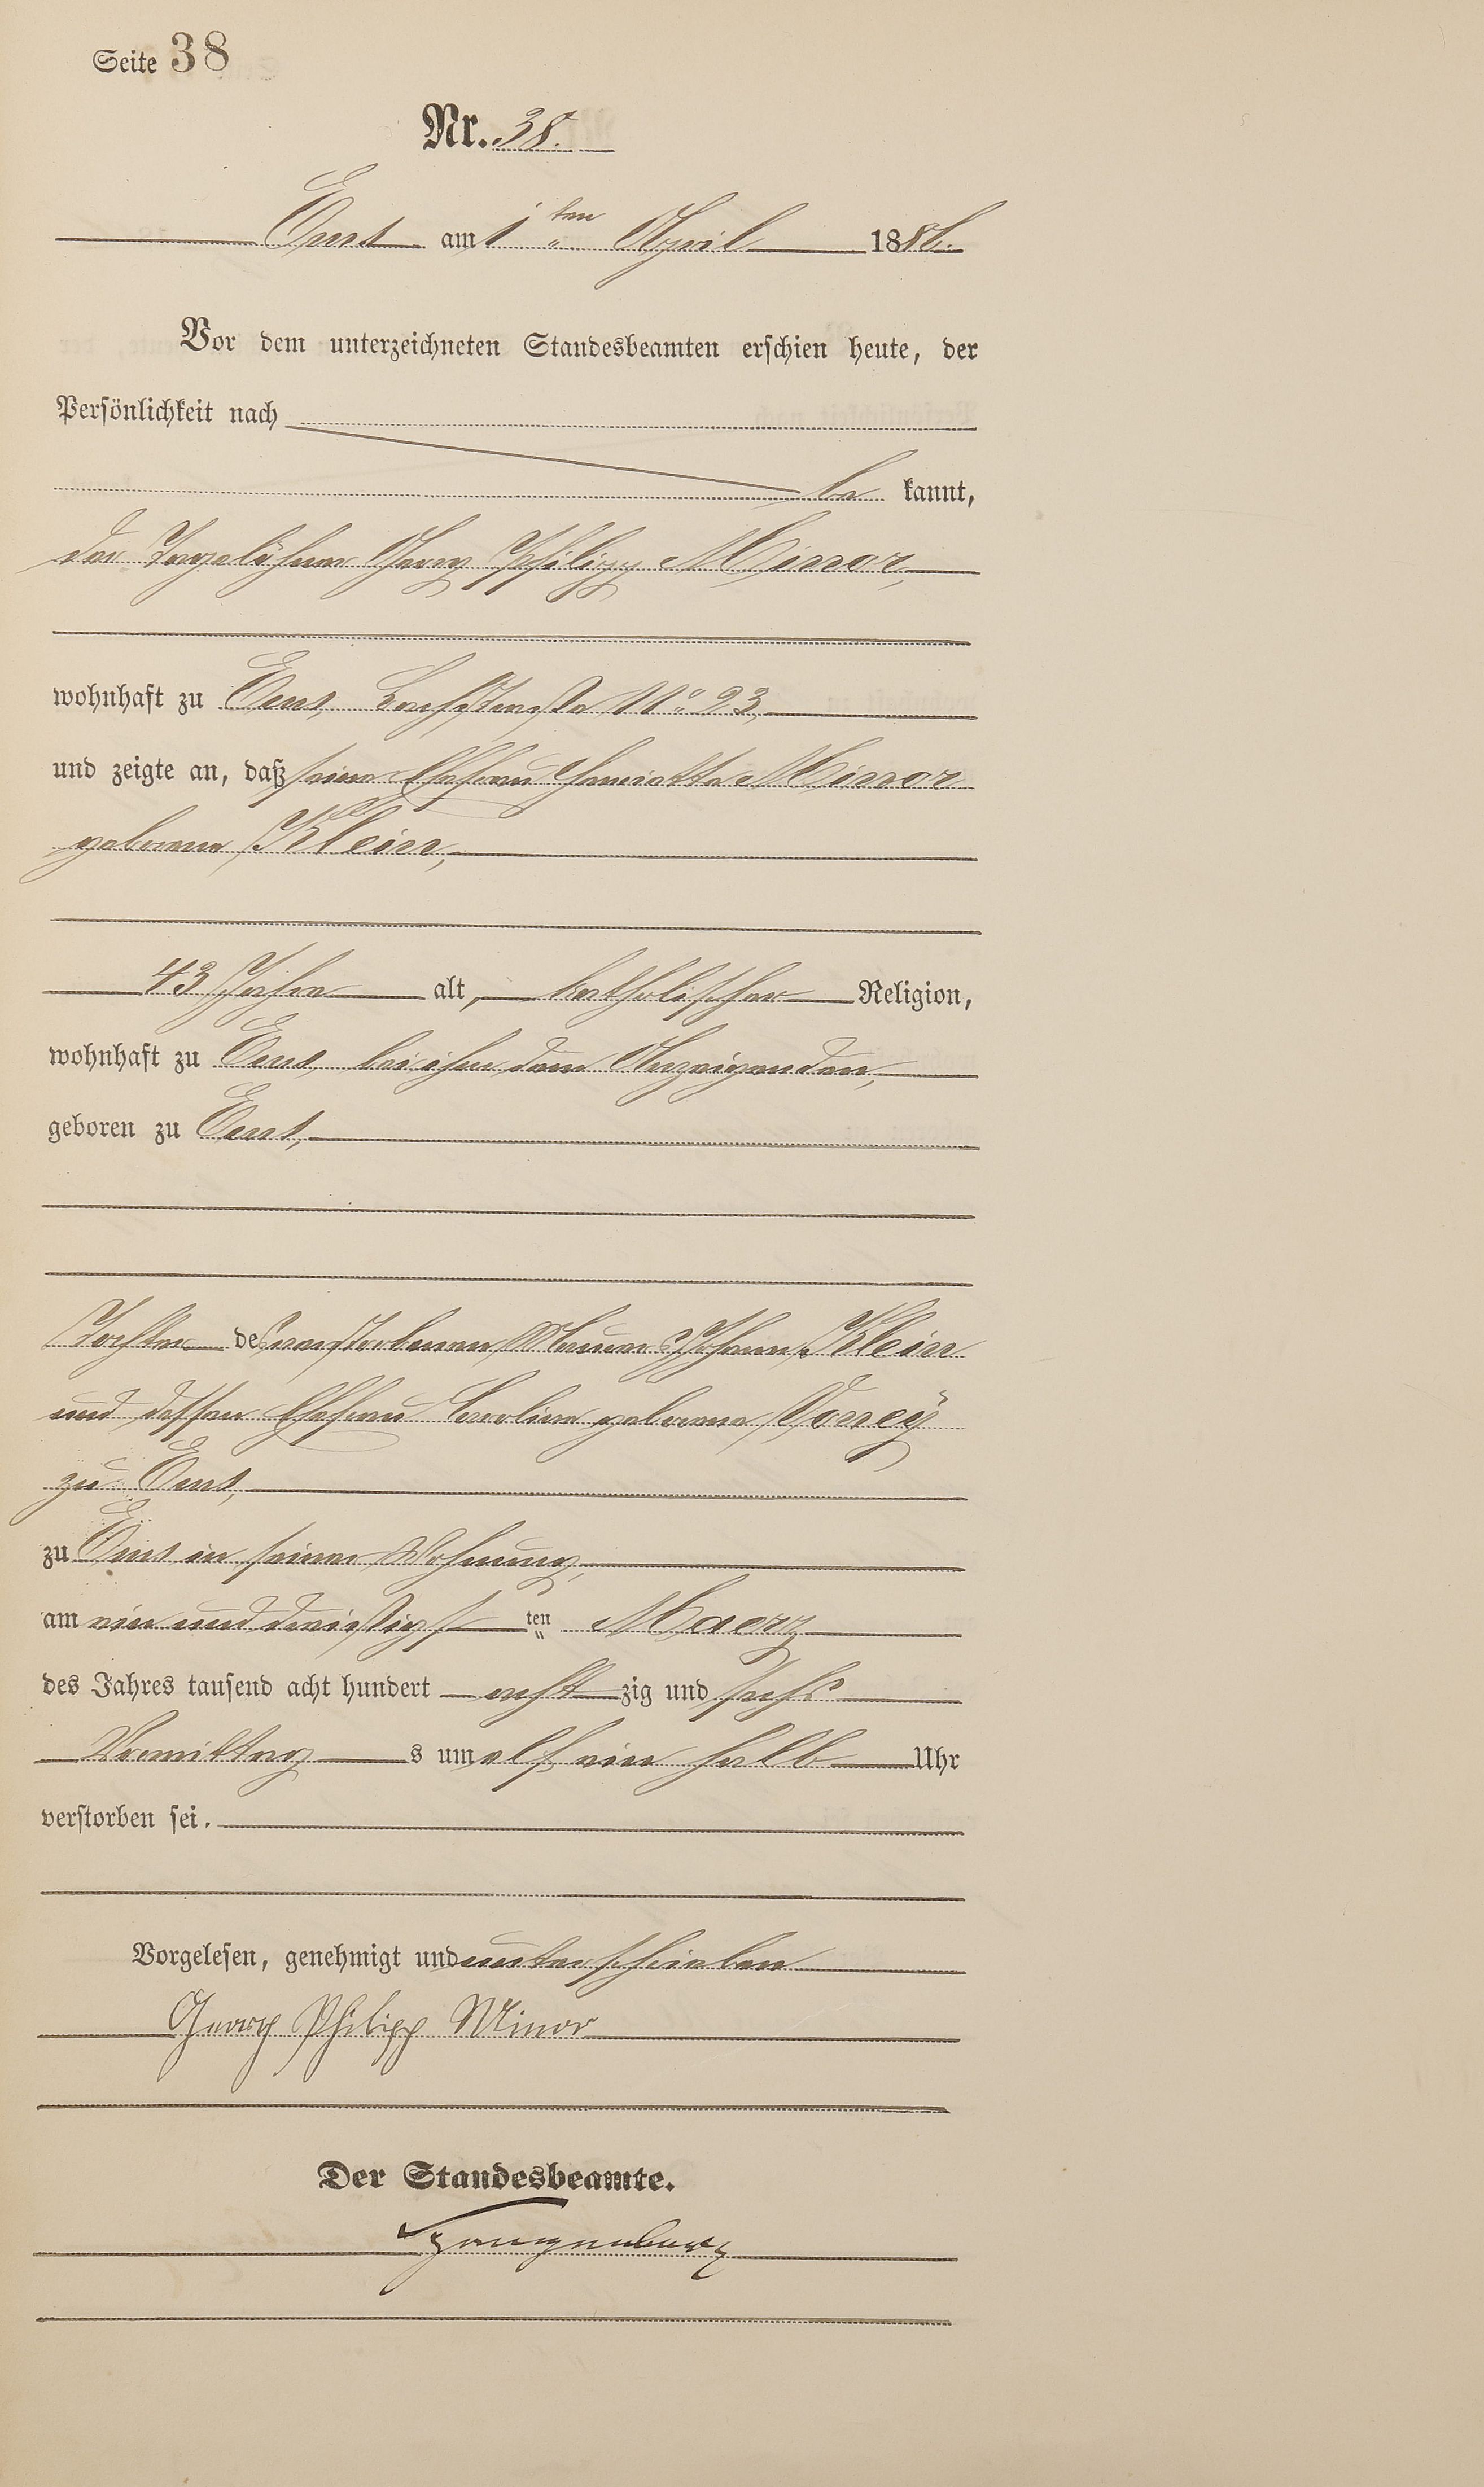 Seite 38
Nr. 38.
Ems am 1ten April 1886.
Vor dem unterzeichneten Standesbeamten erschien heute, der
Persönlichkeit nach
be kannt,
der Tagelöhner Georg Philipp Minor,
wohnhaft zu Ems, No 23,
und zeigte an, daß seine Ehefrau Henriette Minor
geborene Klein,
43 Jahre alt, katholischer Religion,
wohnhaft zu Ems, bei ihm dem Anzeigenden,
geboren zu Ems,
Tochter des verstorbenen Maurers Johann Klein
und dessen Ehefrau Caroline geborene
zu Ems,
zu Ems in seiner Wohnung,
am ein und dreißigsten Maerz
des Jahres tausend acht hundert acht zig und sechs
Vormittags um elf ein halb Uhr
verstorben sei.
Vorgelesen, genehmigt und unterschrieben
Georg Philipp Minor
Der Standesbeamte.